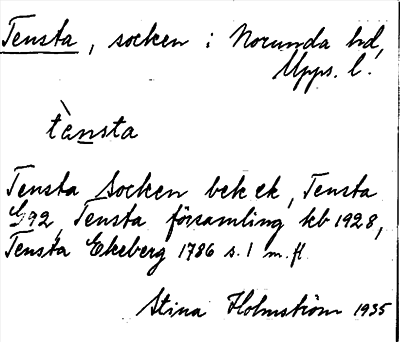 Tensta, socken i Norunda hd,
Upps. l.
tènsta
Tensta Socken bek ek, Tensta
G92, Tensta församling kb 1928,
Tensta Ekeberg 1786 s. 1 m. fl
Stina Holmström 1935